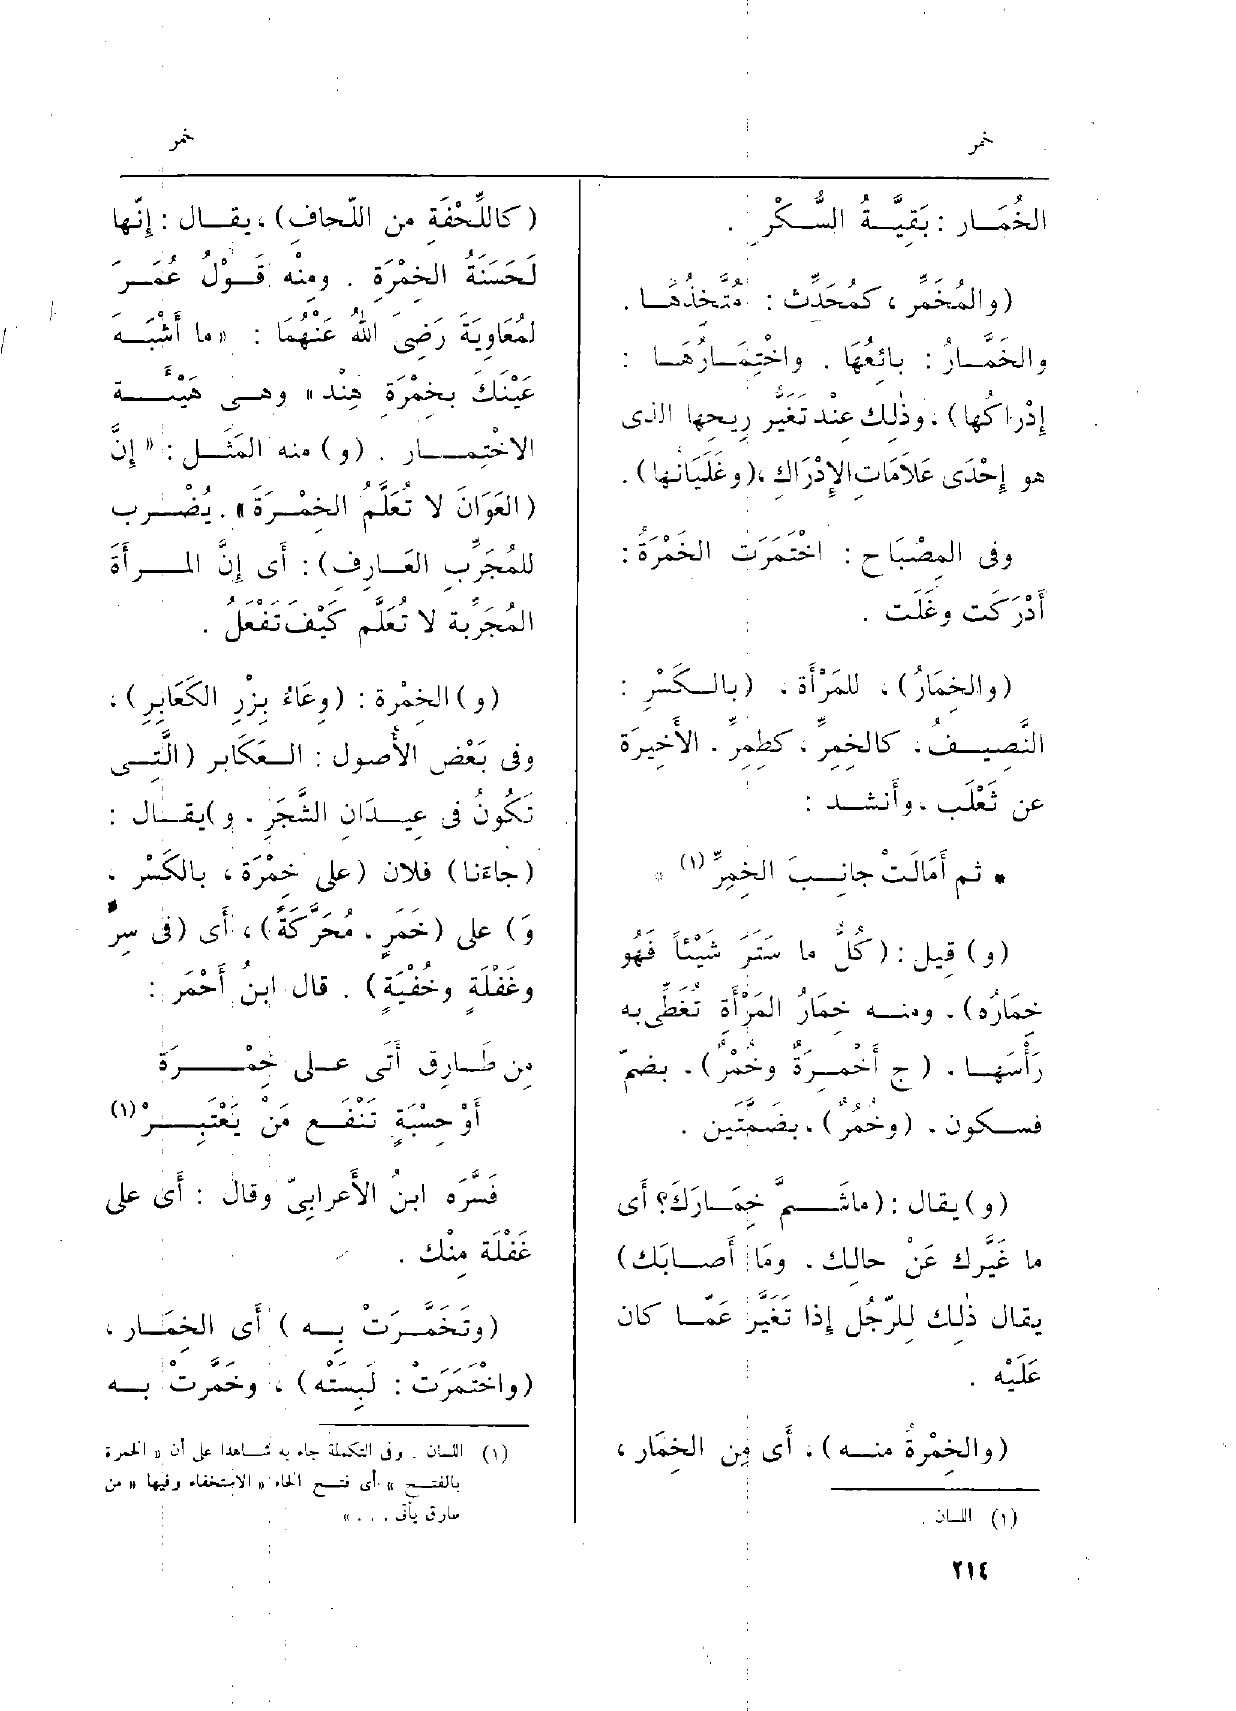 خمر
خمر
الخُمَار : بَقِيَّةُ السُّكْرِ .
(والمُخَمِّر ، كمُحَدِّث : مُتَّخِذُهَا .
والخَمَّارُ : بائِعُهَا . واخْتِمَارُهَا :
إِدْراكُها) ، وذٰلك عند تَغَيُّرِ رِيحِها الذى
هو إِحْدَى عَلَامَاتِ الإِدْرَاكِ ، (وغَلَيَانُها) .
وفى المِصْبَاح : اخْتَمَرَت الخَمْرَةُ :
أَدْرَكَت وغَلَت .
(والخِمَارُ) ، للمَرْأَة ، (بالكَسْرِ :
النَّصِيفُ ، كالخِمِرِّ ، كطِمِرٍّ . الأَخِيرَة
عن ثَعْلَب . وأَنشد :
* ثم أَمَالَتْ جانِبَ الخِمِرِّ (١) *
(و) قيل : (كُلُّ ما سَتَرَ شَيْئاً فَهُو
خِمَارُه) . ومنه خِمَارُ المَرْأَةِ تُغَطِّى به
رَأْسَهَا . (ج أَخْمِرَةٌ وخُمْرٌ) . بضمّ
فسكون . (وخُمُرٌ) . بضَمَّتَيْن .
(و) يقال : (ماشَمَّ خِمَارَكَ؟ أَى
ما غَيَّرك عَنْ حالِك . ومَا أَصابَك)
يقال ذٰلك لِلرَّجُلِ إِذا تَغَيَّرَ عَمَّا كان
عَلَيْه .
(والخِمْرةُ منه) ، أَى مِن الخِمَار ،
(١) اللسان .
(كاللِّحْفَةِ من اللِّحاف) ، يقال : إِنّها
لَحَسَنَةُ الخِمْرَةِ . ومنْه قَوْلُ عُمَرَ
لمُعَاوِيَةَ رَضِىَ اللهُ عَنْهُمَا : « ما أَشْبَهَ
عَيْنَكَ بخِمْرَةِ هِنْد » وهى هَيْئَة
الاخْتِمار . (و) منه المَثَل : « إِنَّ
(العَوَانَ لا تُعَلَّمُ الخِمْرَةَ » . يُضْرب
للمُجَرِّبِ العَارِفِ) : أَى إِنَّ المرأَةَ
المُجَرِّبة لا تُعَلَّم كَيْفَ تَفْعَلُ .
(و) الخِمْرة : (وِعَاءُ بِزْرِ الكَعَابِرِ) ،
وفى بَعْضِ الأُصول : العَكابر (الَّتِى
تَكُونُ فى عِيدَانِ الشَّجَرِ . و) يقال :
(جاءَنا) فلان (على خِمْرَة ، بالكَسْرِ ،
وَ) على (خَمَرٍ ، مُحَرَّكَةً) ، أَى (فى سِرٍّ
وغَفْلَةٍ وخُفْيَةٍ) . قال ابنُ أَحْمَر :
مِن طَارِق أَتَى على خِمْرَة
أَوْ حِسْبَةٍ تَنْفَع مَنْ يَعْتَبِرْ (١)
فَسَّرَه ابنُ الأَعرابِىّ وقال : أَى على
غَفْلَة مِنْك .
(وتَخَمَّرَتْ بِه) أَى الخِمَار ،
(واخْتَمَرَتْ : لَبِسَتْه) ، وخَمَّرتْ به
(١) اللسان . وفى التكملة جاء به شاهدا على أن « الخمرة
بالفتح » أى فتح الخاء « الاستخفاء وفيها « من
سارق يأتى . . . »
٢١٤